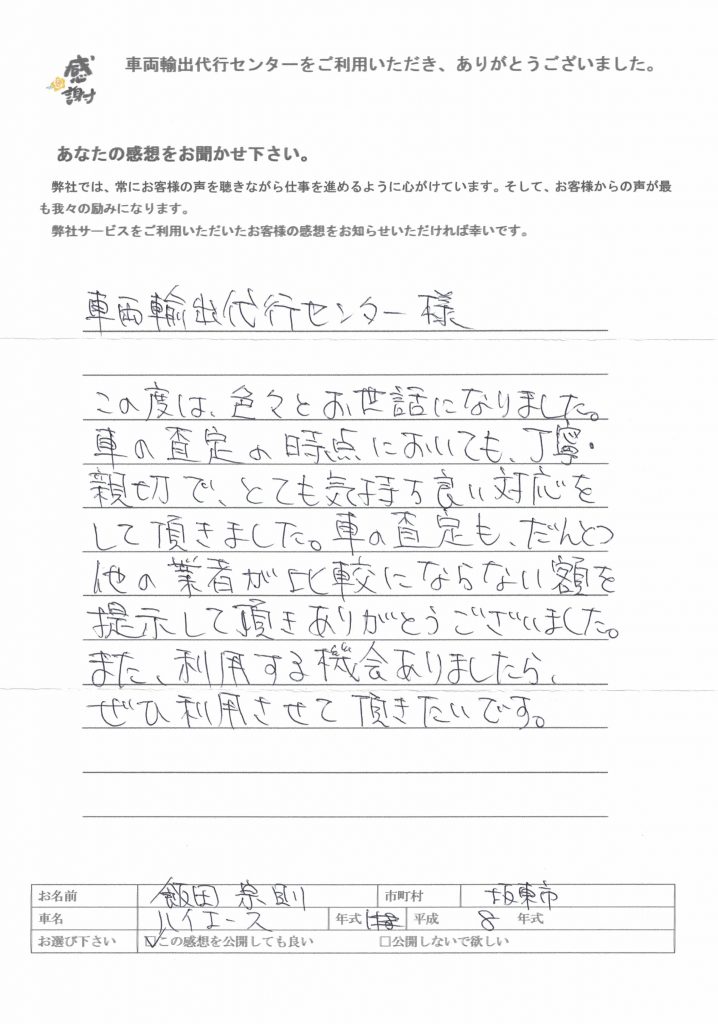 感謝
車両輸出代行センターをご利用いただき、ありがとうございました。
あなたの感想をお聞かせ下さい。
弊社では、常にお客様の声を聴きながら仕事を進めるように心がけています。そして、お客様からの声が最
も我々の励みになります。
弊社サービスをご利用いただいたお客様の感想をお知らせいただければ幸いです。
車両輸出代行センター様
この度は、色々とお世話になりました。
車の査定の時点においても、丁寧・
親切で、とても気持ち良い対応を
して頂きました。車の査定も、だんとつ
他の業者が比較にならない額を
提示して頂きありがとうございました。
また、利用する機会ありましたら、
ぜひ利用させて頂きたいです。
お名前 飯田 宗則 市町村 坂東市
車名 ハイエース 年式 平成 8 年式
お選び下さい ☑この感想を公開しても良い □公開しないで欲しい